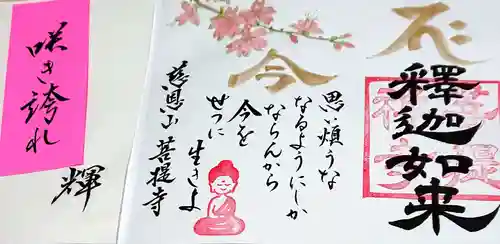 咲き誇れ
輝
釋迦如来
今
思い煩うな
なるようにしか
ならんから
今を
せつに
生きよ
慈恩山 菩提寺